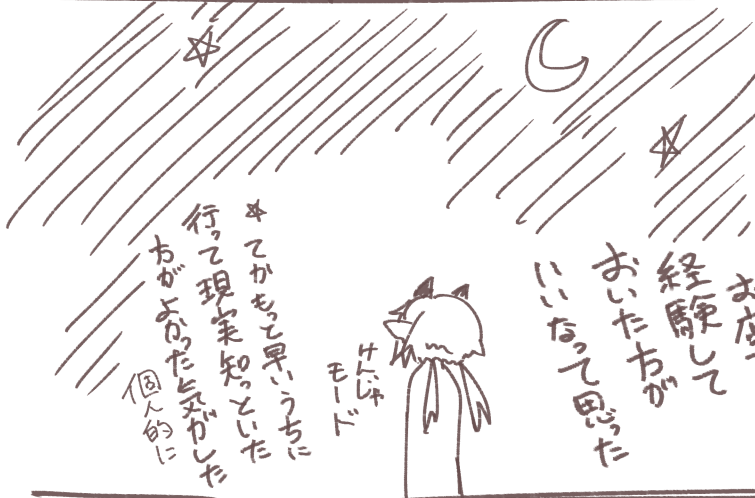 お店
経験して
おいた方が
いいなって思った
けんじゃ
モード
☆てかもっと早いうちに
行って現実知っといた
方がよかった気がした
個人的に